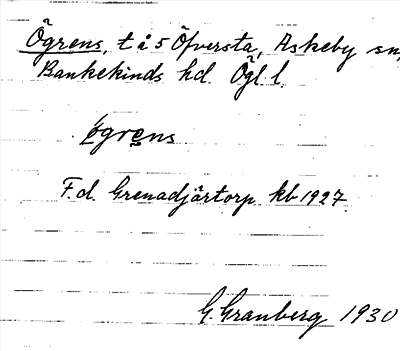 Ögrens, t å 5 Öfversta, Askeby sn,
Bankekinds hd. Ögl. l.
ögrens
F.d. Grenadjärtorp kb 1927.
G. Granberg 1930